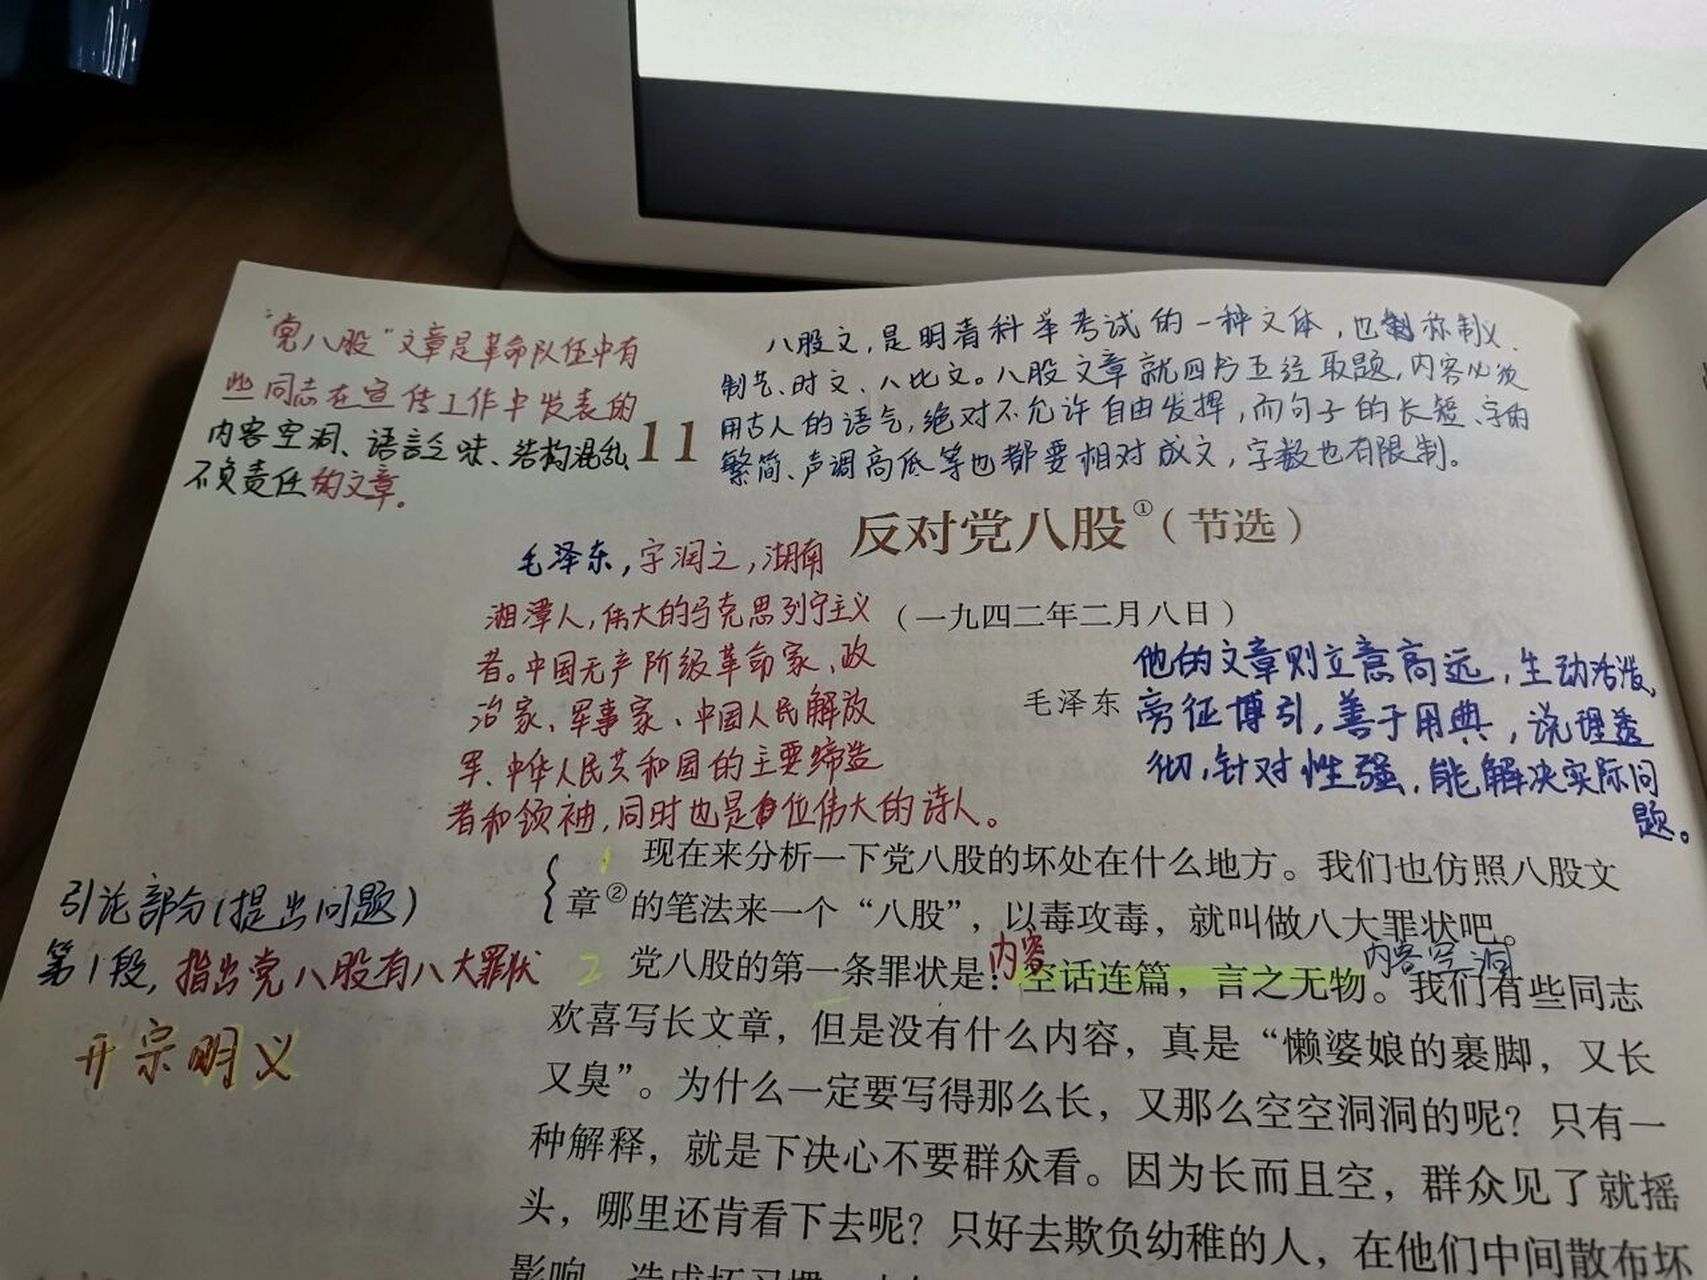 “党八股”文章是革命队伍中有
些同志在宣传工作中发表的
内容空洞、语言乏味、结构混乱
不负责任的文章。
11
八股文,是明清科举考试的一种文体,也称制义、
制艺、时文、八比文。八股文章就四书五经取题,内容必须
用古人的语气,绝对不允许自由发挥,而句子的长短、字的
繁简、声调高低等也都要相对成文,字数也有限制。
反对党八股①(节选)
(一九四二年二月八日)
毛泽东
毛泽东,字润之,湖南
湘潭人,伟大的马克思列宁主义
者。中国无产阶级革命家、政
治家、军事家、中国人民解放
军、中华人民共和国的主要缔造
者和领袖,同时也是位伟大的诗人。
他的文章则立意高远,生动活泼,
旁征博引,善于用典,说理透
彻,针对性强,能解决实际问
题。
引论部分(提出问题)
第1段,指出党八股有八大罪状
开宗明义
1 现在来分析一下党八股的坏处在什么地方。我们也仿照八股文
章②的笔法来一个“八股”,以毒攻毒,就叫做八大罪状吧。
内容
内容空洞
2 党八股的第一条罪状是:空话连篇,言之无物。我们有些同志
欢喜写长文章,但是没有什么内容,真是“懒婆娘的裹脚,又长
又臭”。为什么一定要写得那么长,又那么空空洞洞的呢?只有一
种解释,就是下决心不要群众看。因为长而且空,群众见了就摇
头,哪里还肯看下去呢?只好去欺负幼稚的人,在他们中间散布坏
影响,造成坏习惯。